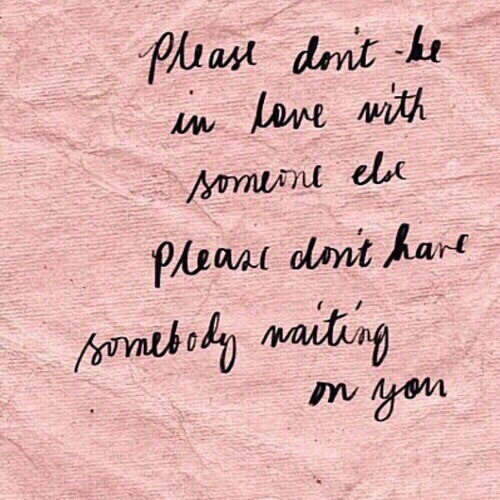 Please don't be
in love with
someone else
Please don't have
somebody waiting
on you